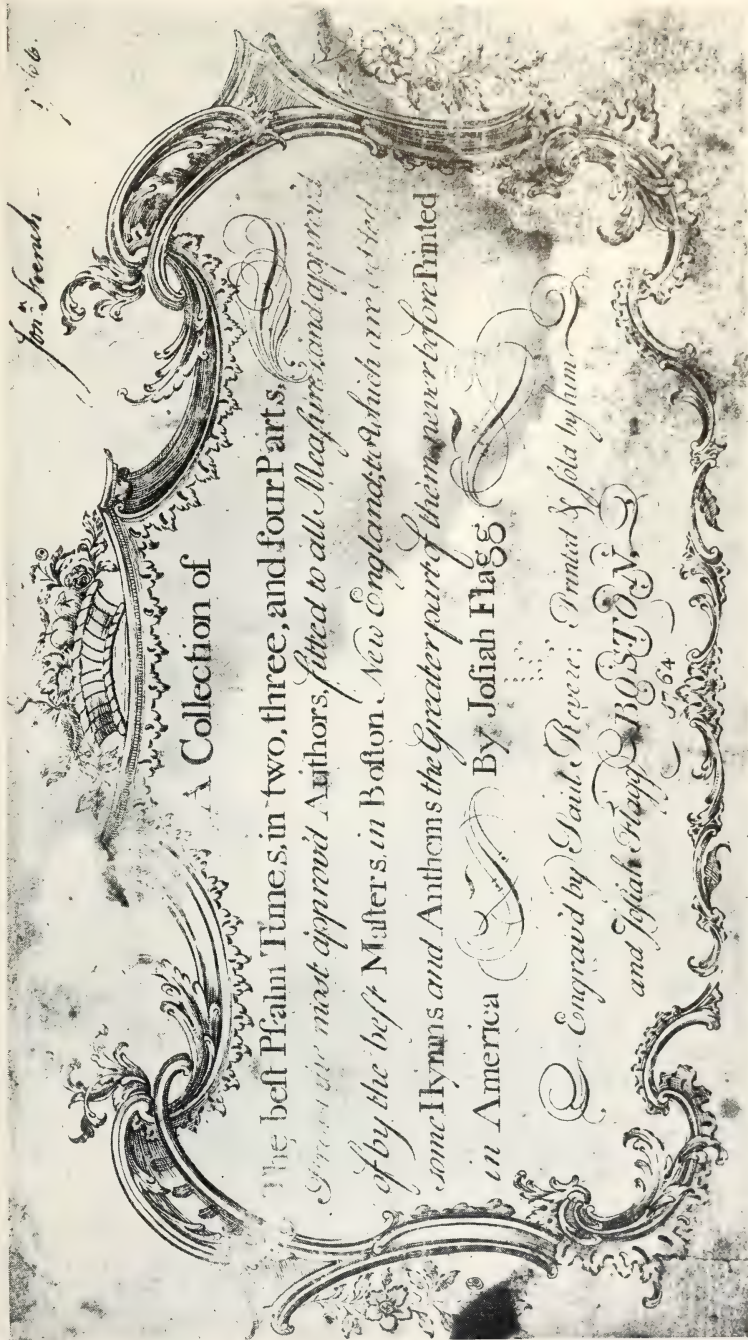 Jonᵃ French
A Collection of
The beſt Pſalm Tunes, in two, three, and four Parts,
From the most approv'd Authors, fitted to all Meaſures, and approv'd
of by the beſt Maſters in Boſton New England, to which are added
some Hymns and Anthems the Greater part of them never before Printed
in America By Joſiah Flagg
Engrav'd by Paul Revere: Printed & ſold by him
and Joſiah Flagg BOSTON,
1764